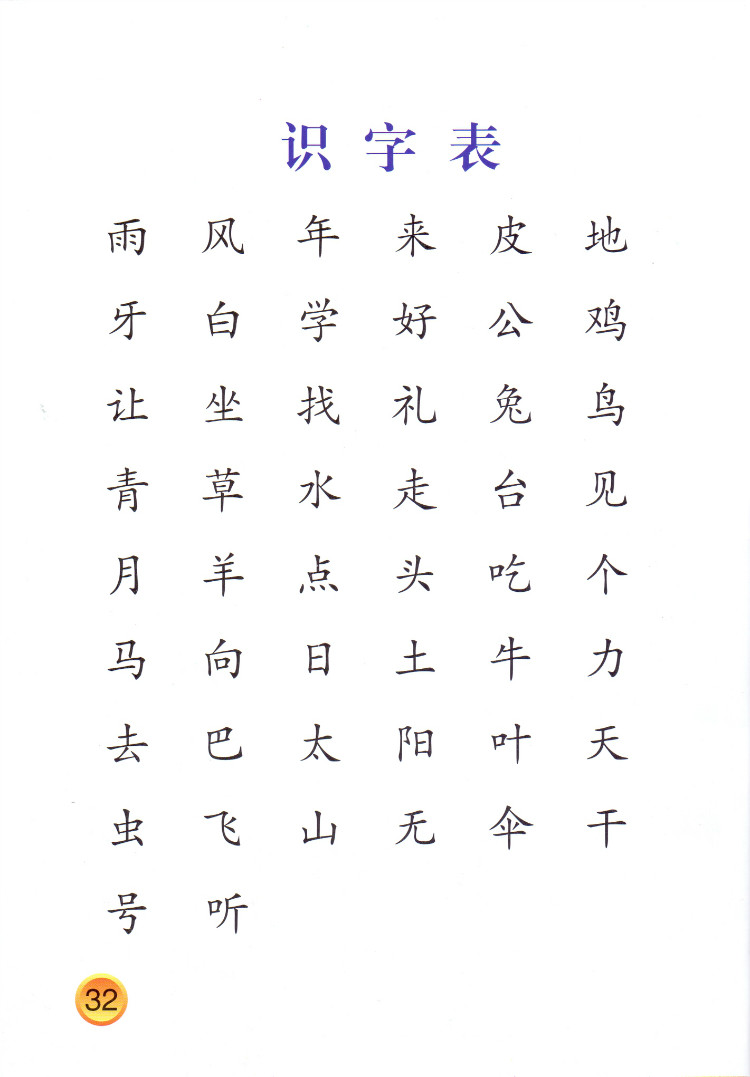 识字表
雨 风 年 来 皮 地
牙 白 学 好 公 鸡
让 坐 找 礼 兔 鸟
青 草 水 走 台 见
月 羊 点 头 吃 个
马 向 日 土 牛 力
去 巴 太 阳 叶 天
虫 飞 山 无 伞 干
号 听
32